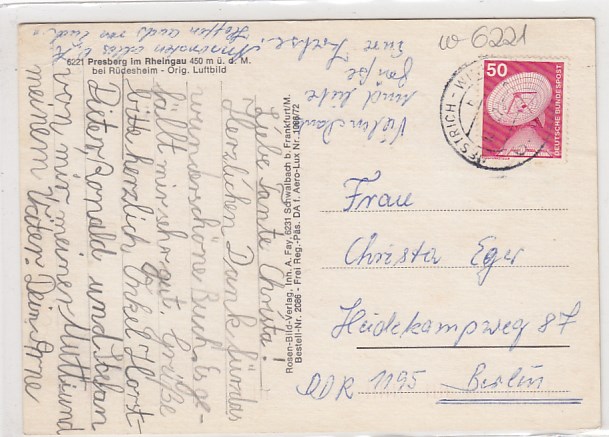 w 6221
6221 Presberg im Rheingau 450 m ü. d. M.
bei Rüdesheim - Orig. Luftbild
Liebe Tante Christa!
Herzlichen Dank für das
wunderschöne Buch. Es ge-
fällt mir sehr gut. Grüße
bitte herzlich Onkel Horst-
Dieter, Ronald und Stefan
von mir, meiner Mutti und
meinem Vater. Dein Arne
Vielen Dank
und liebe
Grüße
Eure
Hoffen auch von Euch.
Rosen-Bild-Verlag. Inh. A. Fay, 6231 Schwalbach b. Frankfurt/M.
Bestell-Nr. 2086 - Frei Reg.-Päs. DA 1. Aero-Lux Nr. 1066/72
50
DEUTSCHE BUNDESPOST
OESTRICH-WI
Frau
Christa Eger
Heidekampweg 87
DDR 1195 Berlin